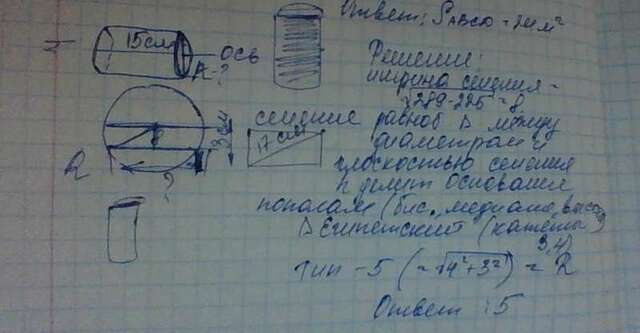 Ответ: SABCD = 24 м²
15см
ось
R-?
Решение:
ширина сечения -
√289-225 = 8
сечение
равноб Δ между
17 см
3 см
диаметром и
плоскостью сечения
R
?
h делит основание
пополам (бис., медиана, высота)
Δ Египетский (катеты
3,4)
гип - 5 (= √4²+3²) = R
Ответ: 5